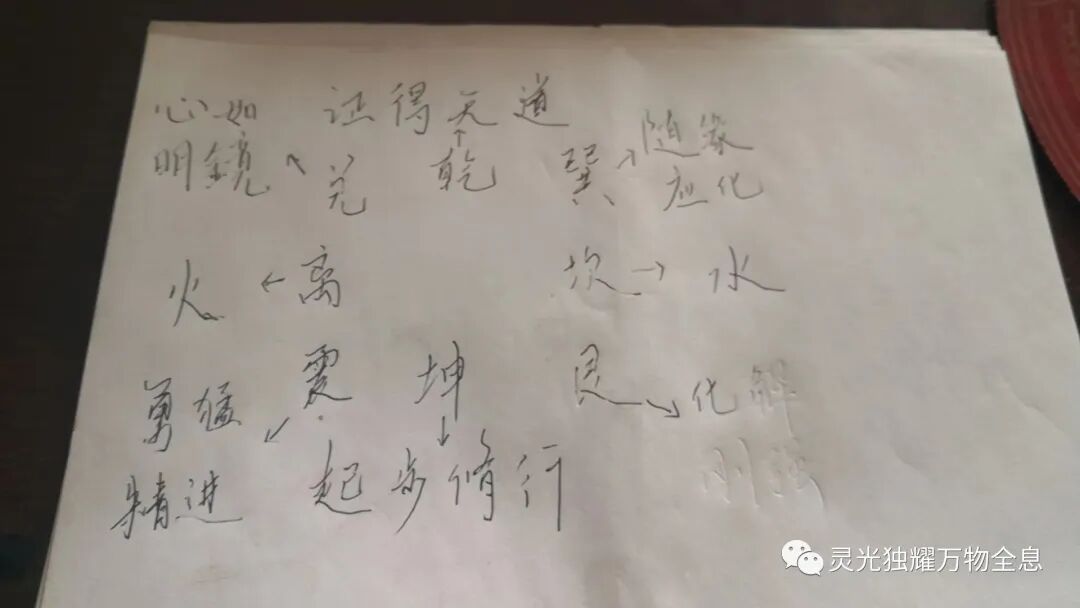 心如 证得天道
明鏡 兑 乾 巽 随缘
应化
火 离 坎 水
勇猛 震 坤 艮 化解
精进 起步修行 刚强
灵光独耀万物全息